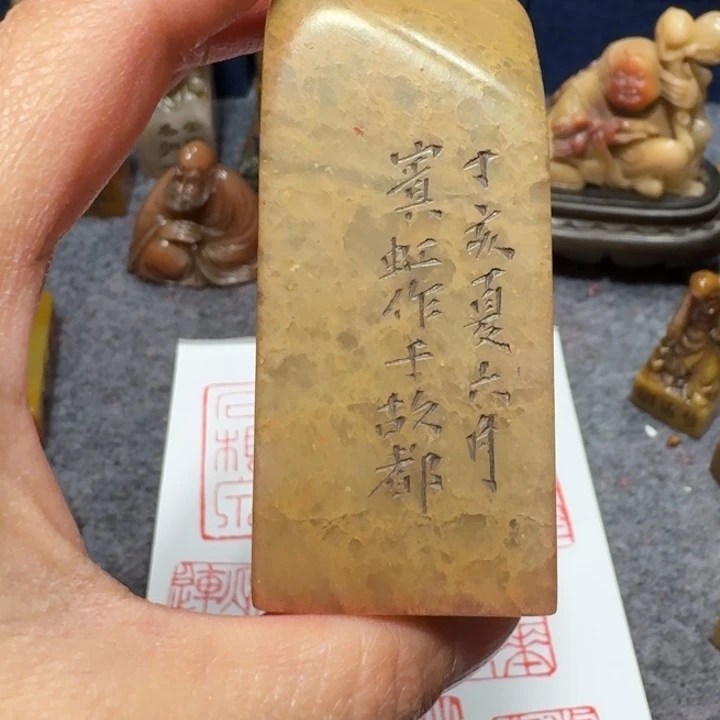 丁亥夏六月
賓虹作于故都